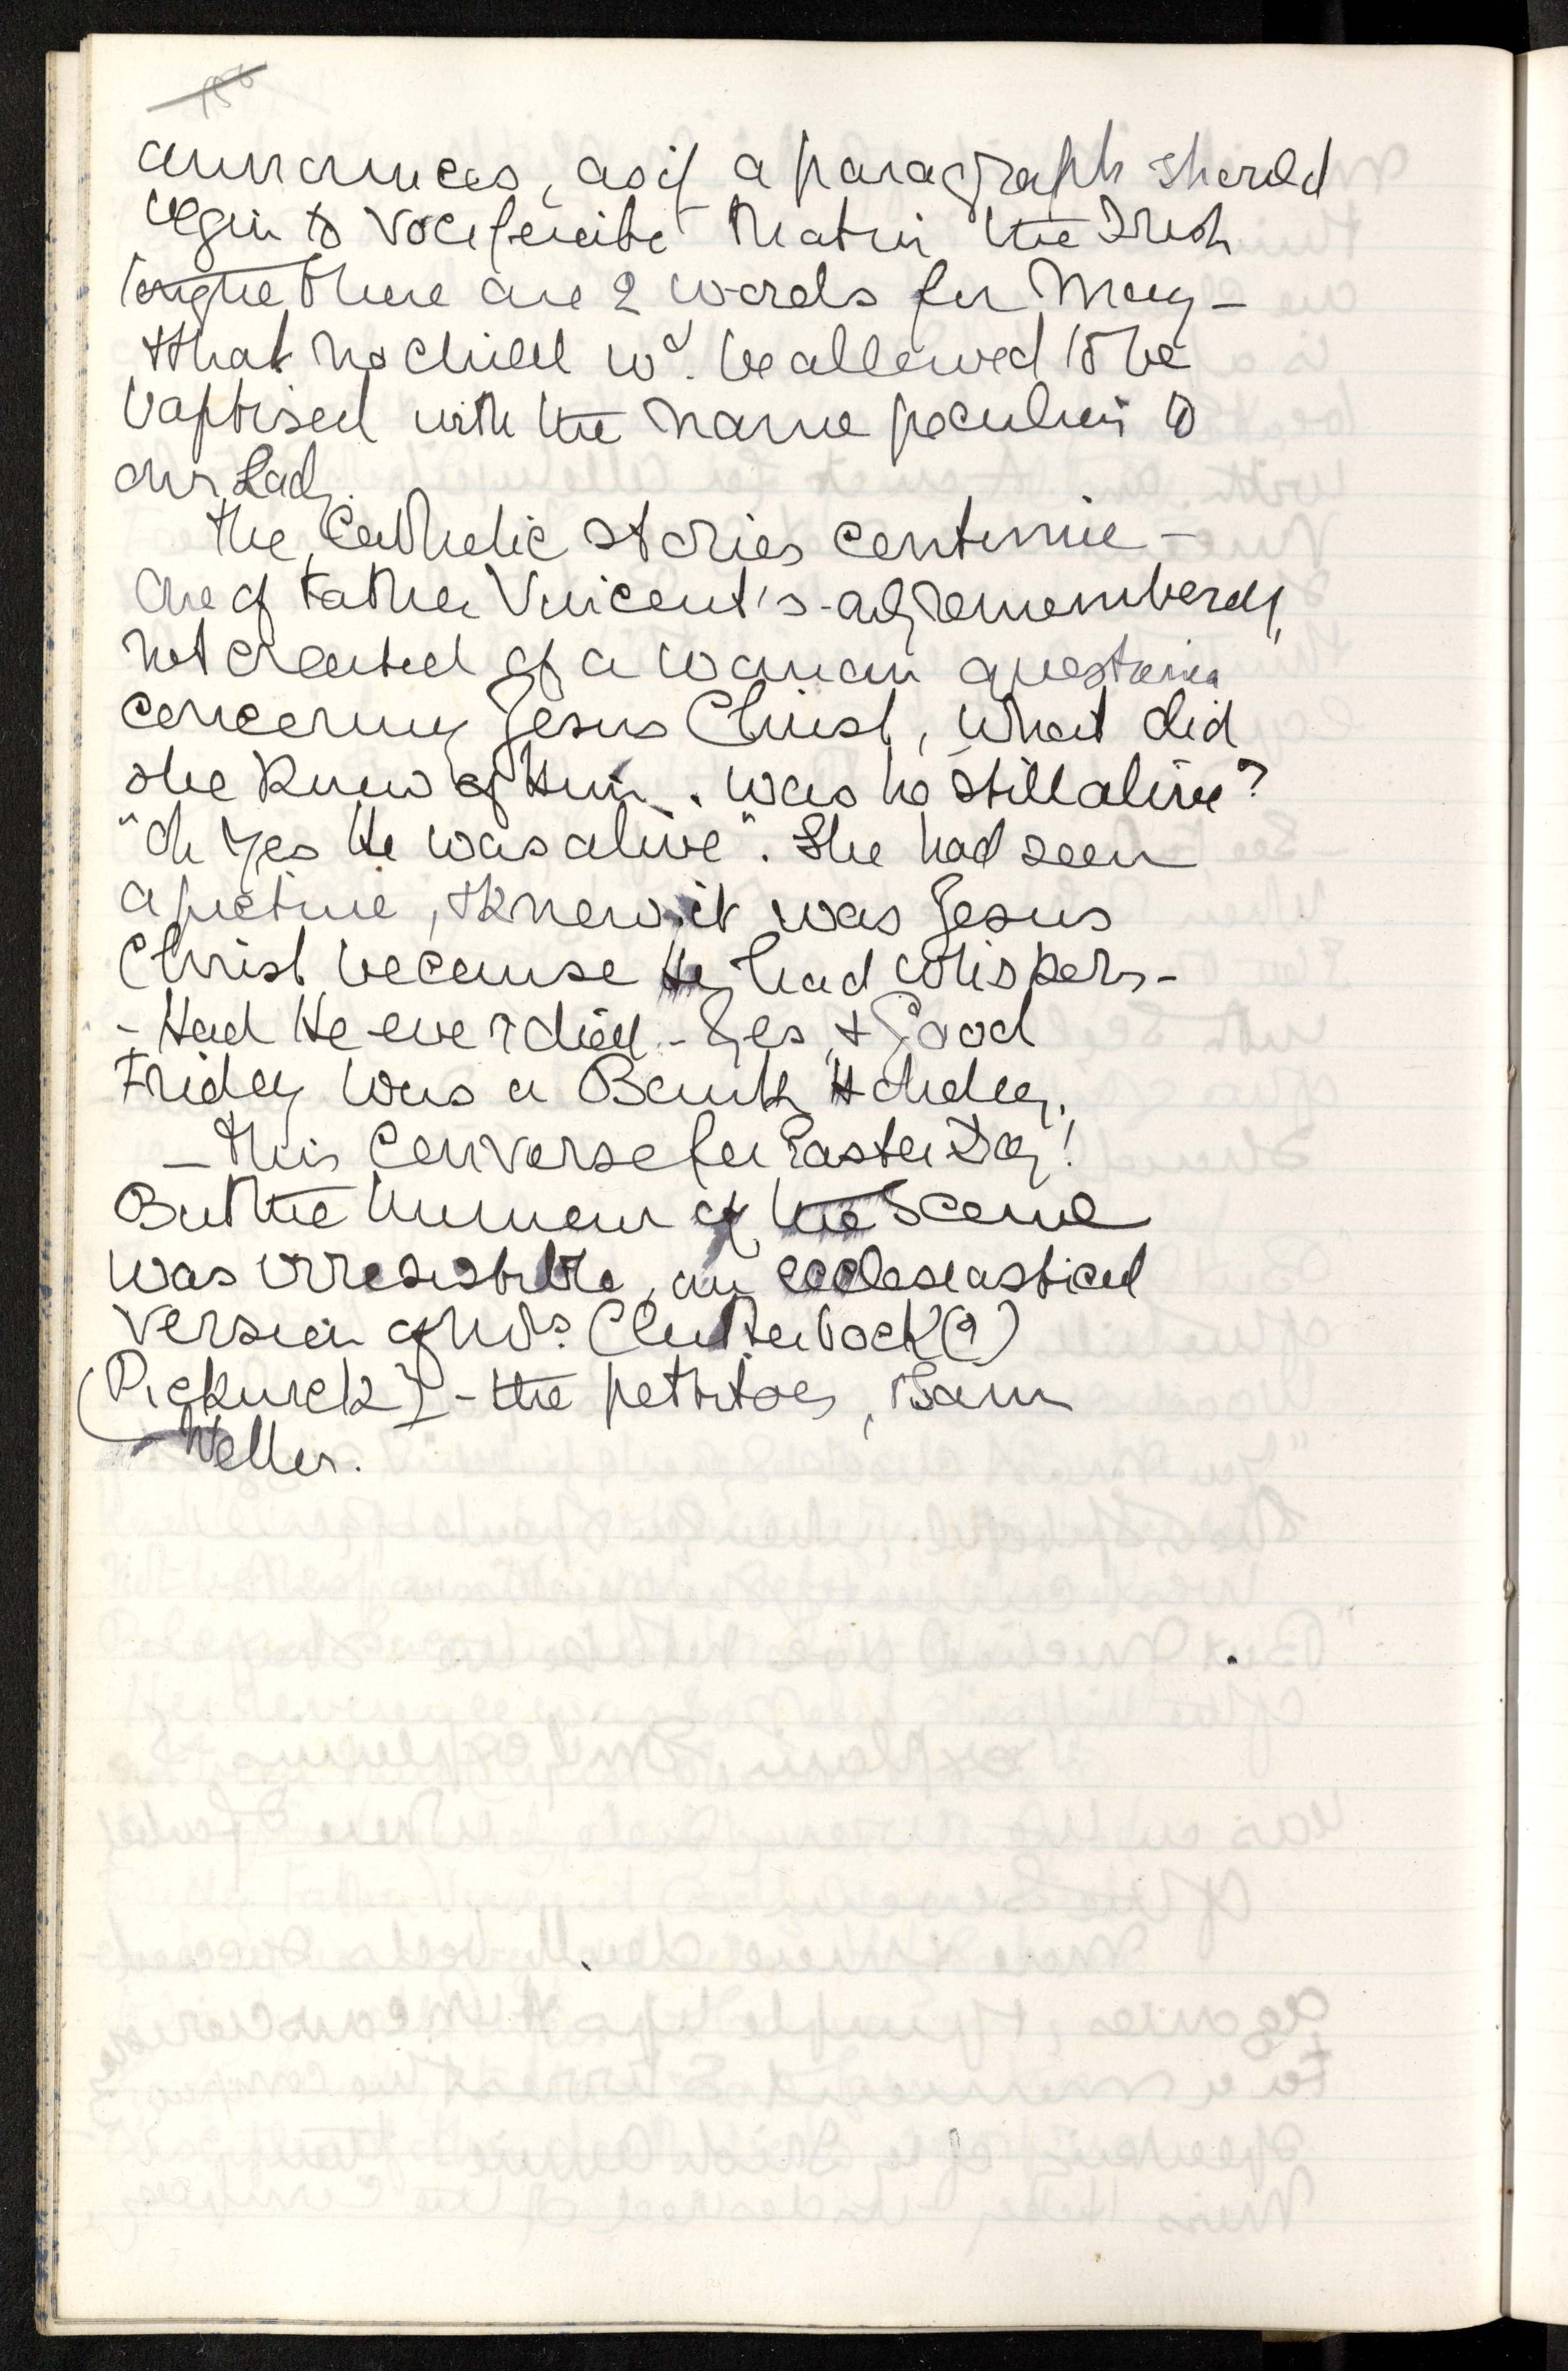 announces, as if a paragraph should
begin to vociferate that in the Irish
tongue there are 2 words for Mary –
& that no child wd. be allowed to be
baptised with the name peculiar to
our Lady.
The Catholic stories continue –
One of Father Vincent's – only remembered,
not created of a woman questioned
concerning Jesus Christ, what did
she know of Him. Was he still alive?
"Oh yes He was alive". She had seen
a picture, & knew it was Jesus
Christ because He had whiskers –
– Had He ever died – Yes, & Good
Friday was a Bank Holiday.
– this converse for Easter Day!
But the humour of the scene
was irresistible, an ecclesiastical
version of Mrs Clutterbock (?)
(Pickwick) – the pettitoes, Sam
Weller.